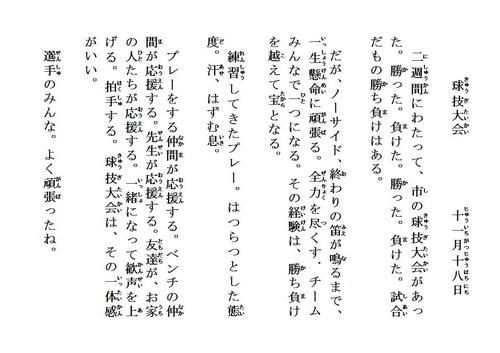 球技大会　十一月十八日
二週間にわたって、市の球技大会があっ
た。勝った。負けた。勝った。負けた。試合
だもの勝ち負けはある。
だが、ノーサイド、終わりの笛が鳴るまで、
一生懸命に頑張る。全力を尽くす。チーム
みんなで一つになる。その経験は、勝ち負け
を越えて宝となる。
練習してきたプレー。はつらつとした態
度。汗、はずむ息。
プレーをする仲間が応援する。ベンチの仲
間が応援する。先生が応援する。友達が、お家
の人たちが応援する。一緒になって歓声を上
げる。拍手する。球技大会は、その一体感
がいい。
選手のみんな。よく頑張ったね。